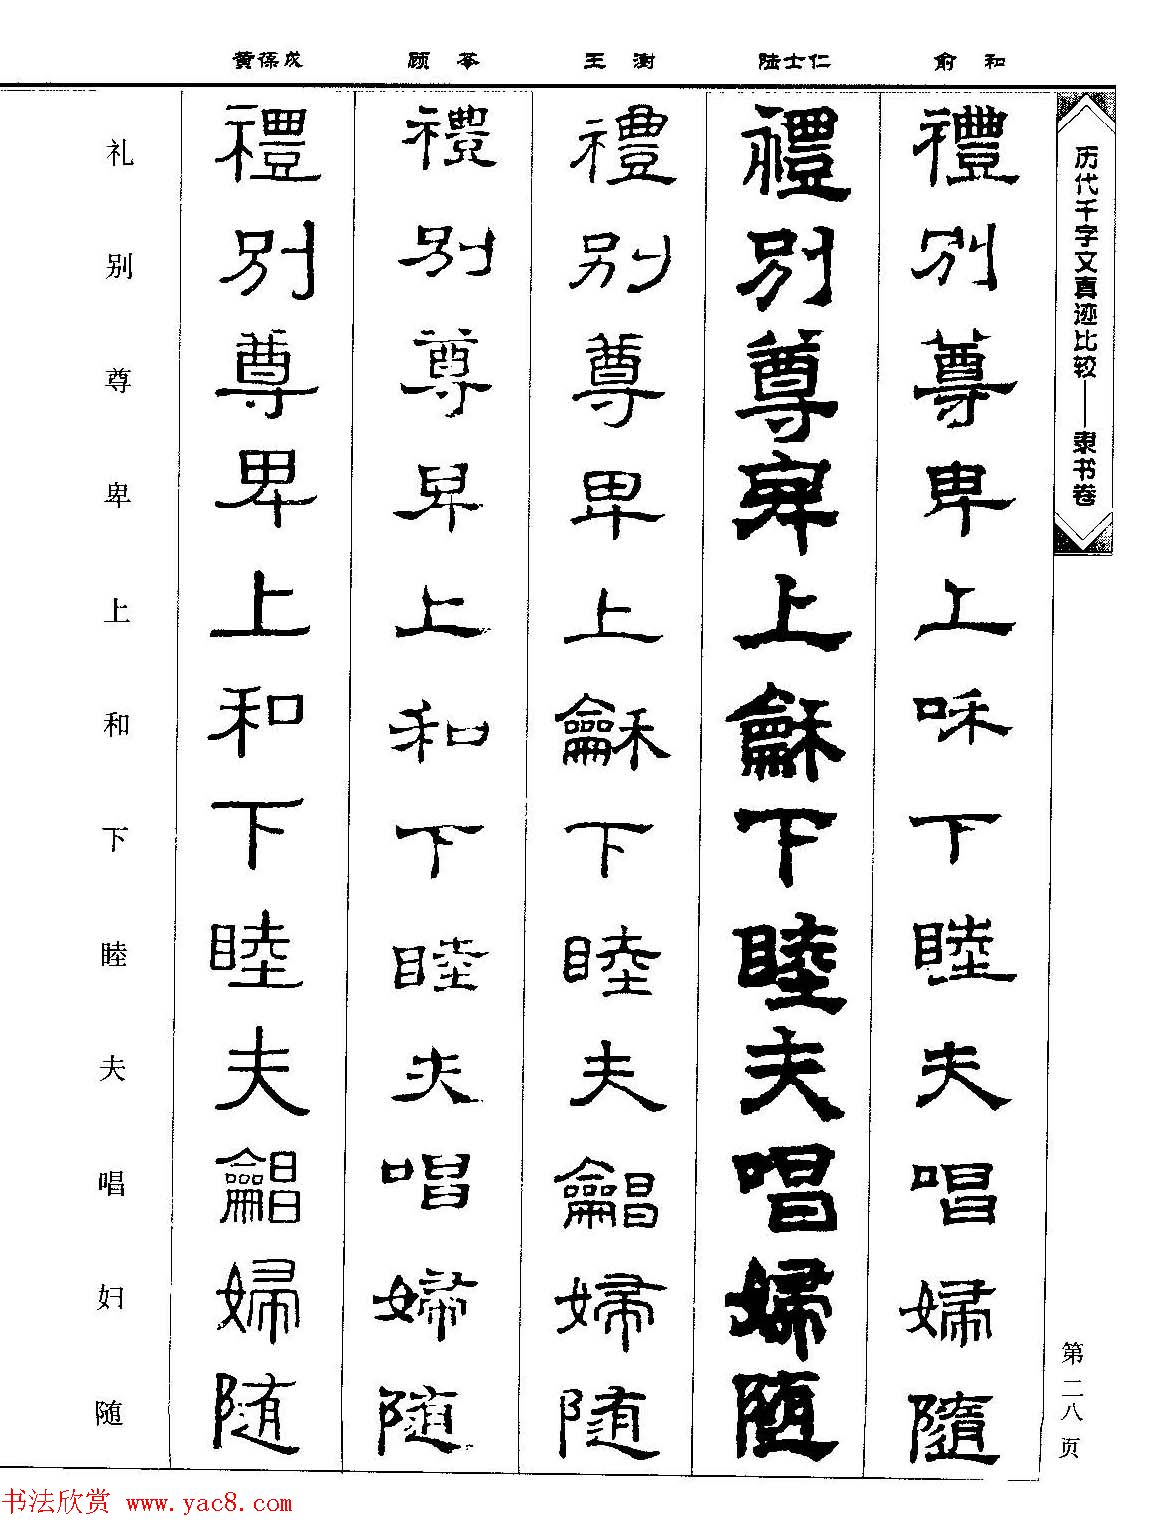 历代千字文真迹比较——隶书卷
第二八页
俞和
禮別尊卑上咊下睦夫唱婦隨
陆士仁
禮別尊卑上龢下睦夫唱婦随
王澍
禮別尊卑上龢下睦夫婦随
顾苓
禮別尊卑上和下睦夫唱婦隨
黄葆戉
禮別尊卑上和下睦夫婦随
礼别尊卑上和下睦夫唱妇随
书法欣赏 www.yac8.com